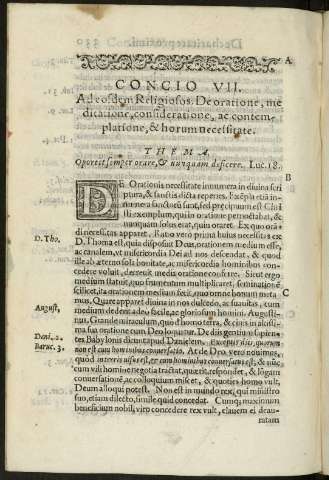 A
CONCIO VII.
Ad eosdem Religiosos. De oratione, me
ditatione, consideratione, ac contem-
platione, & horum necessitate.
THEMA.
Oportet semper orare, & nunquam deficere. Luc. 18.
B
DE Orationis necessitate innumera in diuina scri
ptura, & sanctis dicta reperies. Exempla etiã in-
numera sanctorũ sunt, sed præcipuum est Chri
sti exemplum, qui in oratione pernoctabat, &
nunquam solus erat, quin oraret. Ex quo oran
di necessitas apparet. Ratio vero prima huius necessitas ex
D. Tho. D. Thoma est, quia disposuit Deus, orationem medium esse,
ac canalem, vt misericordia Dei ad nos descendat, & quod
ille ab æterno sola bonitate, ac misericordia hominibus con-
cedere voluit, decreuit media oratione conferre. Sicut ergo
medium statuit, quo frumentum multiplicaret, seminationẽ,
C
scilicet, ita orationem messium fecit, qua omne bonum meta-
mus, Quare apparet diuina in nos dulcedo, ac suauitas, cum
August. medium dederit adeo facile, ac gloriosum homini. Augusti-
nus, Grande miraculum, quod homo terra, & cinis in altissi-
ma sua oratione cum Deo loquatur. De dijs gentium Sapien-
Dani. 2. tes Babylonis dicunt apud Danielem. Exceptis dijs, quorum
Baruc. 3. non est cum hominibus conuersatio. At de Deo vero nouimus,
quod in terris visus est, & cum hominibus conuersatus est, & nũc
cum vili homine negotia tractat, quærit, respondet, & lõgam
conuersationẽ, ac colloquium miscet, & quoties homo vult,
Deum alloqui potest. Non est in mundo rex, qui intimo
suo, etiam dilecto, simile quid concedat. Cumq; maximum
beneficium nobili viro concedere rex vult, clauem ei deau-
ratam